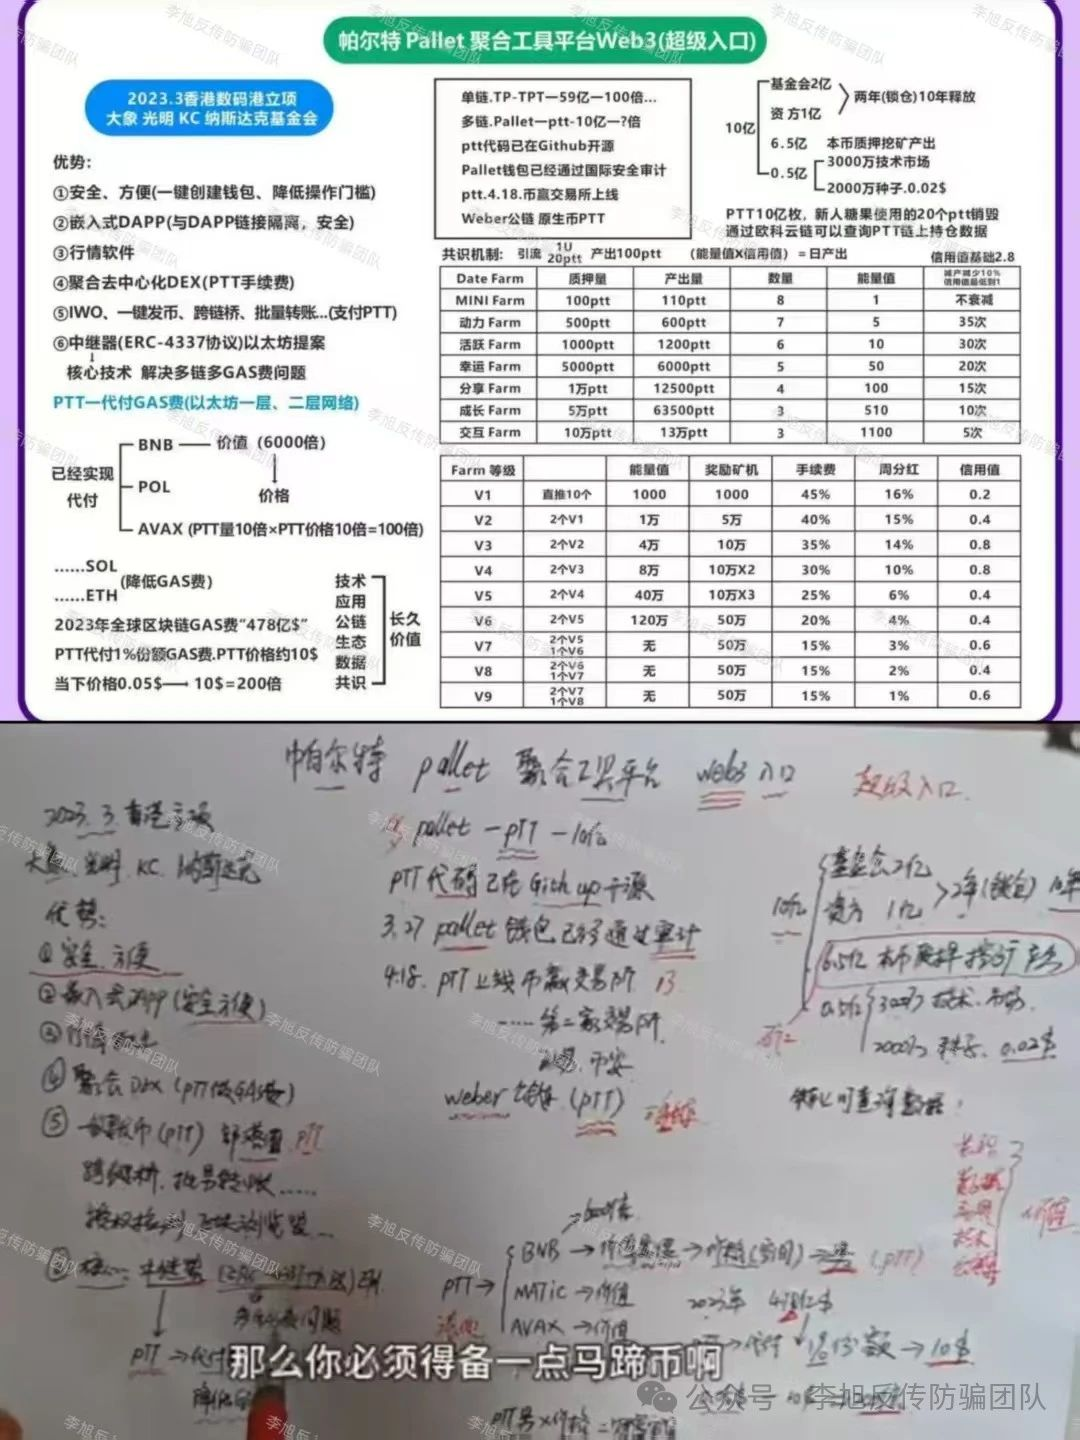 帕尔特 Pallet 聚合工具平台Web3(超级入口)
2023.3香港数码港立项
大象 光明 KC 纳斯达克基金会
优势：
①安全、方便(一键创建钱包、降低操作门槛)
②嵌入式DAPP(与DAPP链接隔离，安全)
③行情软件
④聚合去中心化DEX(PTT手续费)
⑤IWO、一键发币、跨链桥、批量转账...(支付PTT)
⑥中继器(ERC-4337协议)以太坊提案
核心技术 解决多链多GAS费问题
PTT一代付GAS费(以太坊一层、二层网络)
已经实现
代付
BNB 价值（6000倍）
价格
POL
AVAX (PTT量10倍×PTT价格10倍=100倍)
......SOL
(降低GAS费)
......ETH
2023年全球区块链GAS费“478亿$”
PTT代付1%份额GAS费.PTT价格约10$
当下价格0.05$→10$=200倍
技术
应用
公链
生态
数据
共识
长久
价值
单链.TP-TPT一59亿一100倍...
多链.Pallet一ptt-10亿一?倍
ptt代码已在Github开源
Pallet钱包已经通过国际安全审计
ptt.4.18.币赢交易所上线
Weber公链 原生币PTT
10亿
基金会2亿
资 方1亿
两年(锁仓)10年释放
6.5亿 本币质押挖矿产出
0.5亿
3000万技术市场
2000万种子.0.02$
PTT10亿枚，新人糖果使用的20个ptt销毁
通过欧科云链可以查询PTT链上持仓数据
共识机制: 引流 1U 20ptt 产出100ptt （能量值X信用值）=日产出 信用值基础2.8
Date Farm 质押量 产出量 数量 能量值 减产减少10% 信用值最低到1
MINI Farm 100ptt 110ptt 8 1 不衰减
动力 Farm 500ptt 600ptt 7 5 35次
活跃 Farm 1000ptt 1200ptt 6 10 30次
幸运 Farm 5000ptt 6000ptt 5 50 20次
分享 Farm 1万ptt 12500ptt 4 100 15次
成长 Farm 5万ptt 63500ptt 3 510 10次
交互 Farm 10万ptt 13万ptt 3 1100 5次
Farm 等级 能量值 奖励矿机 手续费 周分红 信用值
V1 直推10个 1000 1000 45% 16% 0.2
V2 2个V1 1万 5万 40% 15% 0.4
V3 2个V2 4万 10万 35% 14% 0.8
V4 2个V3 8万 10万X2 30% 10% 0.8
V5 2个V4 40万 10万X3 25% 6% 0.4
V6 2个V5 120万 50万 20% 4% 0.4
V7 2个V5 1个V6 无 50万 15% 3% 0.6
V8 2个V6 1个V7 无 50万 15% 2% 0.4
V9 2个V7 1个V8 无 50万 15% 1% 0.6
帕尔特 pallet 聚合工具平台 web3 入口 超级入口
2023.3.香港立项
大象.光明.KC.纳斯达克
优势:
①安全.方便
②嵌入式DAPP(安全方便)
③行情
④聚合Dex (PTT做GAS费)
⑤一键发币(PTT)
跨链桥.批量转账......
pallet 一PTT 一10亿
PTT代码已在Github开源
3.27 pallet 钱包已经通过审计
4.18. PTT上线币赢交易所
......第二家交易所
币安
weber 公链 (PTT)
10亿
基金会2亿
资方 1亿
2年(锁仓) 10年
6.5亿 本币质押挖矿产出
0.5亿
3000万技术.市场
2000万种子. 0.02$
链上可查询数据
PTT→
BNB →
MATIC →价值
AVAX →价值
2023年 478亿$
→代付 1%份额 → 10$
PTT →代付
那么你必须得备一点马蹄币啊
公众号 · 李旭反传防骗团队
李旭反传防骗团队